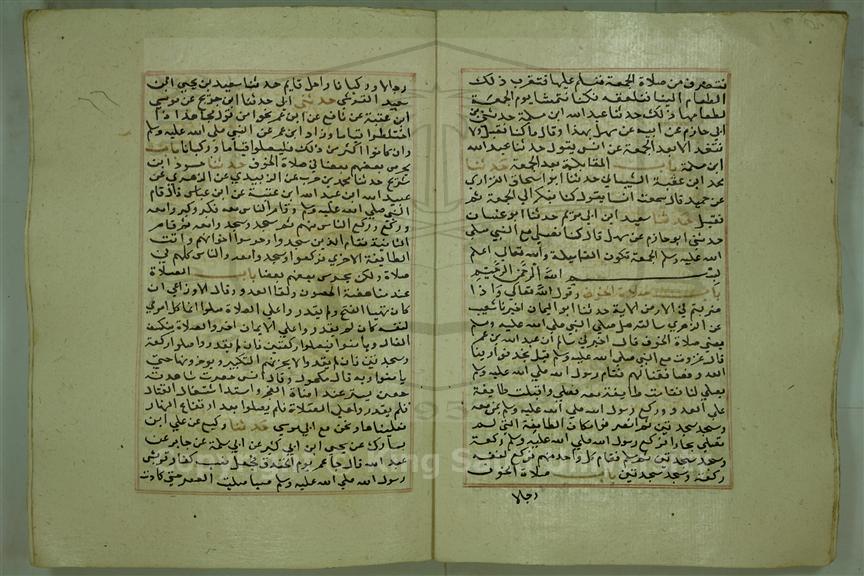 ننصرف من صلاة الجمعة فنسلم عليها فتقرب ذلك
الطعام الينا فنلعقه وكنا نتمنا يوم الجمعة
لطعامها ذلك حدثنا عبد الله ابن مسلمة حدثنا ابن
ابى حازم عن ابيه عن سهل بهذا وقال ما كنا نقيل ولا
نتغدا الا بعد الجمعة
القايلة بعد الجمعة حدثنا
محمد ابن عقبة الشيباني حدثنا ابو اسحاق الفزاري
عن حميد قال سمعت انسا يقول كنا نبكر الى الجمعة ثم
نقيل حدثنا سعيد ابن ابى مريم حدثنا ابو غسان
حدثني ابو حازم عن سهل قال كنا نصلي مع النبي صلى
الله عليه وسلم الجمعة ثم تكون القايلة والله تعالى اعلم
بسم الله الرحمن الرحيم
باب صلاة الخوف وقول الله تعالى واذا
ضربتم في الارض الاية حدثنا ابو اليمان اخبرنا شعيب
عن الزهري سالته هل صلى النبي صلى الله عليه وسلم
يعني صلاة الخوف قال اخبرني سالم ان عبد الله بن عمر
قال غزوت مع النبي صلى الله عليه وسلم قبل نجد فوازينا
العدو فصاففنا لهم فقام رسول الله صلى الله عليه وسلم
يصلي لنا فقامت طايفة معه فصلى واقبلت طايفة
على العدو وركع رسول الله صلى الله عليه وسلم بمن معه
وسجد سجدتين ثم انصرفوا مكان الطايفة التي لم
تصلي فجاوا فركع رسول الله صلى الله عليه وسلم ركعة
وسجد سجدتين ثم سلم فقام كل واحد منهم فركع لنفسه
ركعة وسجد سجدتين باب صلاة الخوف
رجالا
رجالا وركبانا راجل قايم حدثنا سعيد بن يحيى ابن
سعيد القرشي حدثني ابى حدثنا ابن جريج عن موسى
ابن عقبة عن نافع عن ابن عمر نحوا من قول مجاهد اذا
اختلطوا قياما وزاد ابن عمر عن النبي صلى الله عليه وسلم
وان كانوا اكثر من ذلك فليصلوا قياما وركبانا باب
يحرس بعضهم بعضا في صلاة الخوف حدثنا حيوة ابن
شريح حدثنا محمد بن حرب عن الزبيدي عن الزهري عن
عبيد الله ابن عبد الله ابن عتبة عن ابن عباس قال قام
النبي صلى الله عليه وسلم وقام الناس معه فكبر وكبروا معه
وركع وركع الناس منهم ثم سجد وسجدوا معه ثم قام
الثانية فقام الذين سجدوا وحرسوا اخوانهم واتت
الطايفة الاخرى فركعوا وسجدوا معه والناس كلهم في
صلاة ولكن يحرس بعضهم بعضا باب الصلاة
عند مناهضة الحصون ولقا العدو وقال الاوزاعي ان
كان تهيا الفتح ولم يقدروا على الصلاة صلوا ايما كل امري
لنفسه فان لم يقدروا على الايما اخروا الصلاة حتى ينكشف
القتال ويامنوا فيصلوا ركعتين فان لم يقدروا صلوا ركعة
وسجدتين فان لم يقدروا لا يجزيهم التكبير ويوخرونها حتى
يامنوا وبه قال مكحول وقال انس حضرت مناهضة
حصن تستر عند اضاة الفجر واشتد اشتعال القتال
فلم يقدروا على الصلاة فلم يصلوا بعد ارتفاع النهار
فصلينا ونحن مع ابى موسى حدثنا وكيع عن على ابن
مبارك عن يحيى ابن ابى كثير عن ابى سلمة عن جابر عن
عبد الله قال جا عمر يوم الخندق فجعل يسب كفار قريش
رسول الله صلى الله عليه وسلم ما صليت العصر حتى كادت